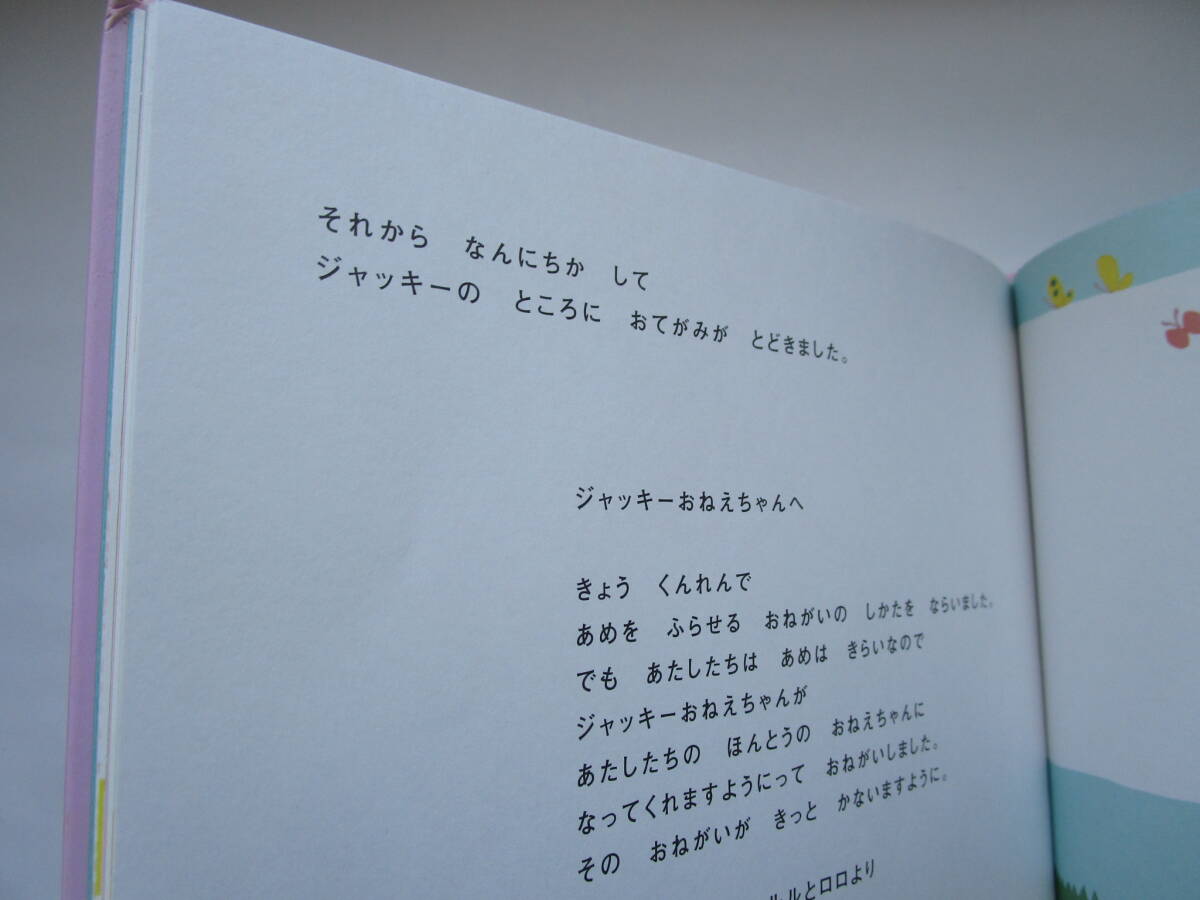 それから　なんにちか　して
ジャッキーの　ところに　おてがみが　とどきました。
ジャッキーおねえちゃんへ
きょう　くんれんで
あめを　ふらせる　おねがいの　しかたを　ならいました。
でも　あたしたちは　あめは　きらいなので
ジャッキーおねえちゃんが
あたしたちの　ほんとうの　おねえちゃんに
なってくれますようにって　おねがいしました。
その　おねがいが　きっと　かないますように。
ルルとロロより